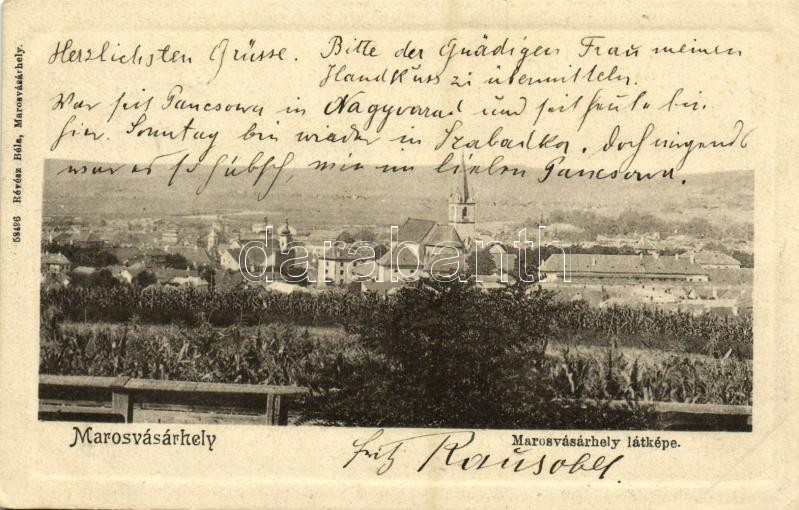 Herzlichsten Grüsse. Bitte der Gnädigen Frau meinen
Handkuss zu übermitteln.
War seit Pancsowa in Nagyvarad und seit heute bin
hier. Sonntag bin wieder in Szabadka. Doch nirgends
war es so hübsch, wie im lieben Pancsowa.
58496 Révész Béla, Marosvásárhely.
darabanth
Marosvásárhely
Marosvásárhely látképe.
Fritz